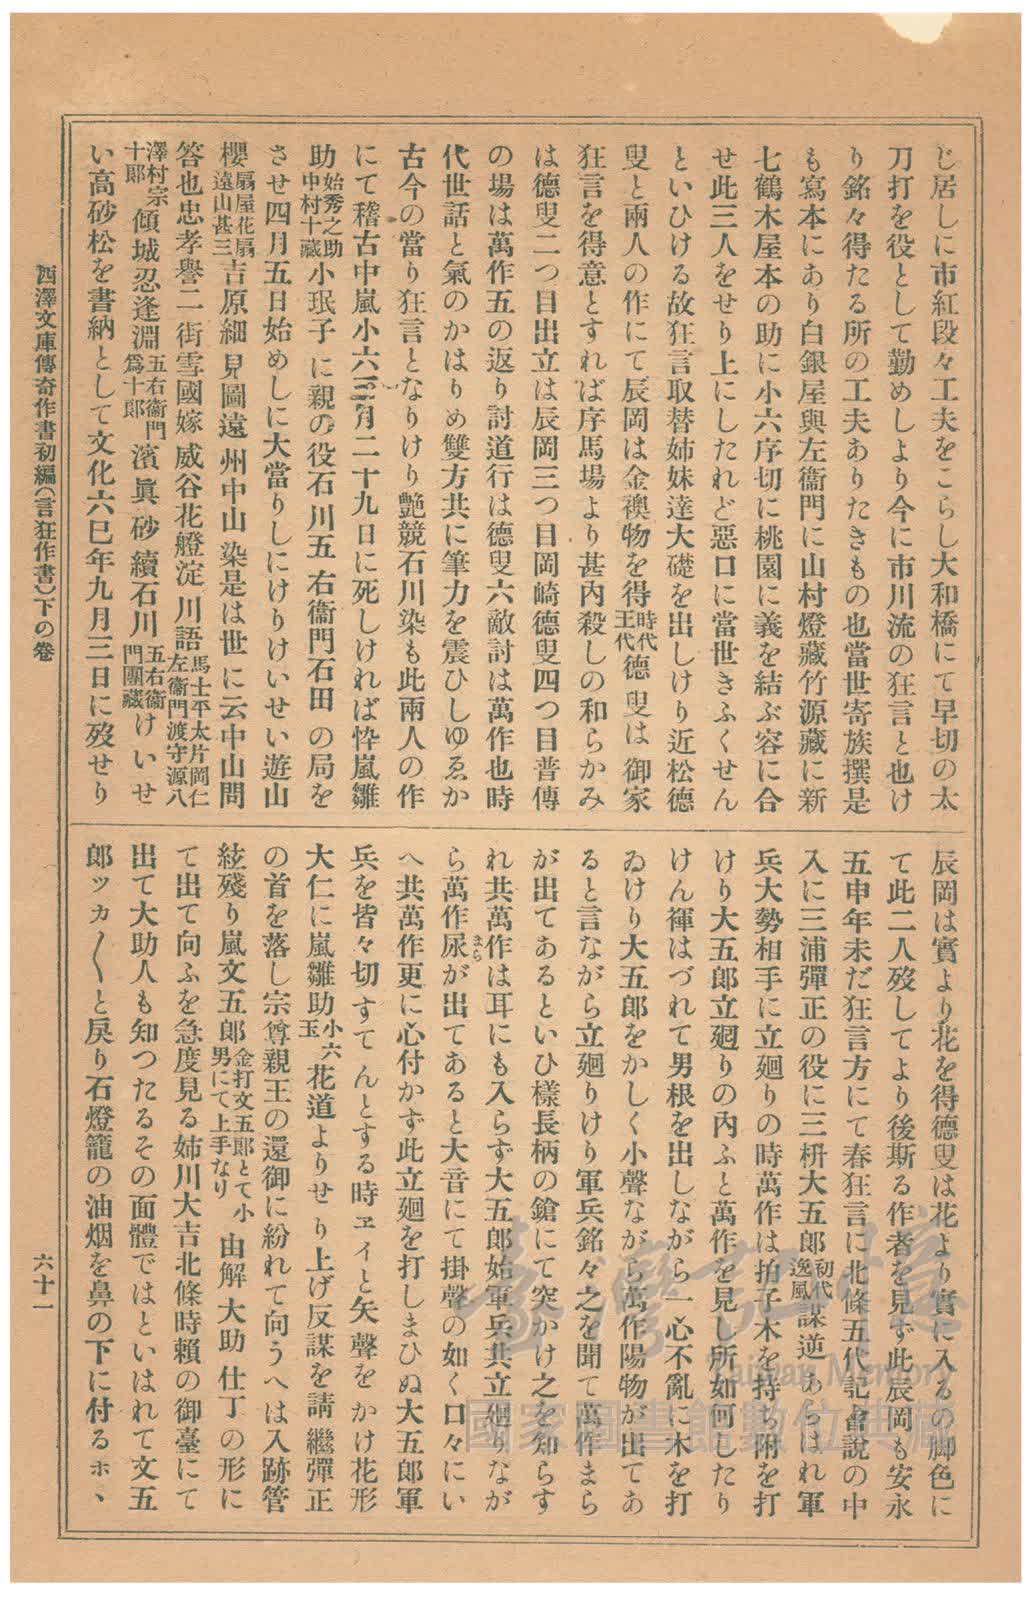 じ居しに市紅段々工夫をこらし大和橋にて早切の太
刀打を役として勤めしより今に市川流の狂言と也け
り銘々得たる所の工夫ありたきもの也當世寄族撰是
も寫本にあり白銀屋與左衞門に山村燈藏竹源藏に新
七鶴木屋本の助に小六序切に桃園に義を結ぶ容に合
せ此三人をせり上にしたれど惡口に當世きふくせん
といひける故狂言取替姉妹達大礎を出しけり近松德
叟と兩人の作にて辰岡は金襖物を得時代王代德叟は御家
狂言を得意とすれば序馬場より甚內殺しの和らかみ
は德叟二つ目出立は辰岡三つ目岡崎德叟四つ目普傳
の場は萬作五の返り討道行は德叟六敵討は萬作也時
代世話と氣のかはりめ雙方共に筆力を震ひしゆゑか
古今の當り狂言となりけり艶競石川染も此兩人の作
にて稽古中嵐小六三月二十九日に死しければ忰嵐雛
助始秀之助中村十藏小珉子に親の役石川五右衞門石田の局を
させ四月五日始めしに大當りしにけりけいせい遊山
櫻扇屋花扇遠山甚三吉原細見圖遠州中山染是は世に云中山問
答也忠孝譽二街雪國嫁威谷花艠淀川語馬士平太片岡仁左衞門渡守源八
澤村宗十郞傾城忍逢淵五右衞門爲十郞濱眞砂續石川五右衞門團藏けいせ
い高砂松を書納として文化六巳年九月三日に歿せり
辰岡は實より花を得德叟は花より實に入るの脚色に
て此二人歿してより後斯る作者を見ず此辰岡も安永
五申年未だ狂言方にて春狂言に北條五代記會說の中
入に三浦彈正の役に三枡大五郞初代逸風謀逆あらはれ軍
兵大勢相手に立廻りの時萬作は拍子木を持ち附を打
けり大五郞立廻りの內ふと萬作を見し所如何したり
けん褌はづれて男根を出しながら一心不亂に木を打
ゐけり大五郞をかしく小聲ながら萬作陽物が出てあ
ると言ながら立廻りけり軍兵銘々之を聞て萬作まら
が出てあるといひ樣長柄の鎗にて突かけ之を知らす
れ共萬作は耳にも入らず大五郞始軍兵共立廻りなが
ら萬作尿まらが出てあると大音にて掛聲の如く口々にい
へ共萬作更に心付かず此立廻を打しまひぬ大五郞軍
兵を皆々切すてんとする時ヱイと矢聲をかけ花形
大仁に嵐雛助小六玉花道よりせり上げ反謀を請繼彈正
の首を落し宗尊親王の還御に紛れて向うへは入跡管
絃殘り嵐文五郞金打文五郞とて小男にて上手なり由解大助仕丁の形に
て出て向ふを急度見る姉川大吉北條時賴の御臺にて
出て大助人も知つたるその面體ではといはれて文五
郞ツカ〱と戾り石燈籠の油烟を鼻の下に付るホヽ
西澤文庫傳奇作書初編（言狂作書）下の卷
六十一
臺灣記憶
Taiwan Memory
國家圖書館數位典藏